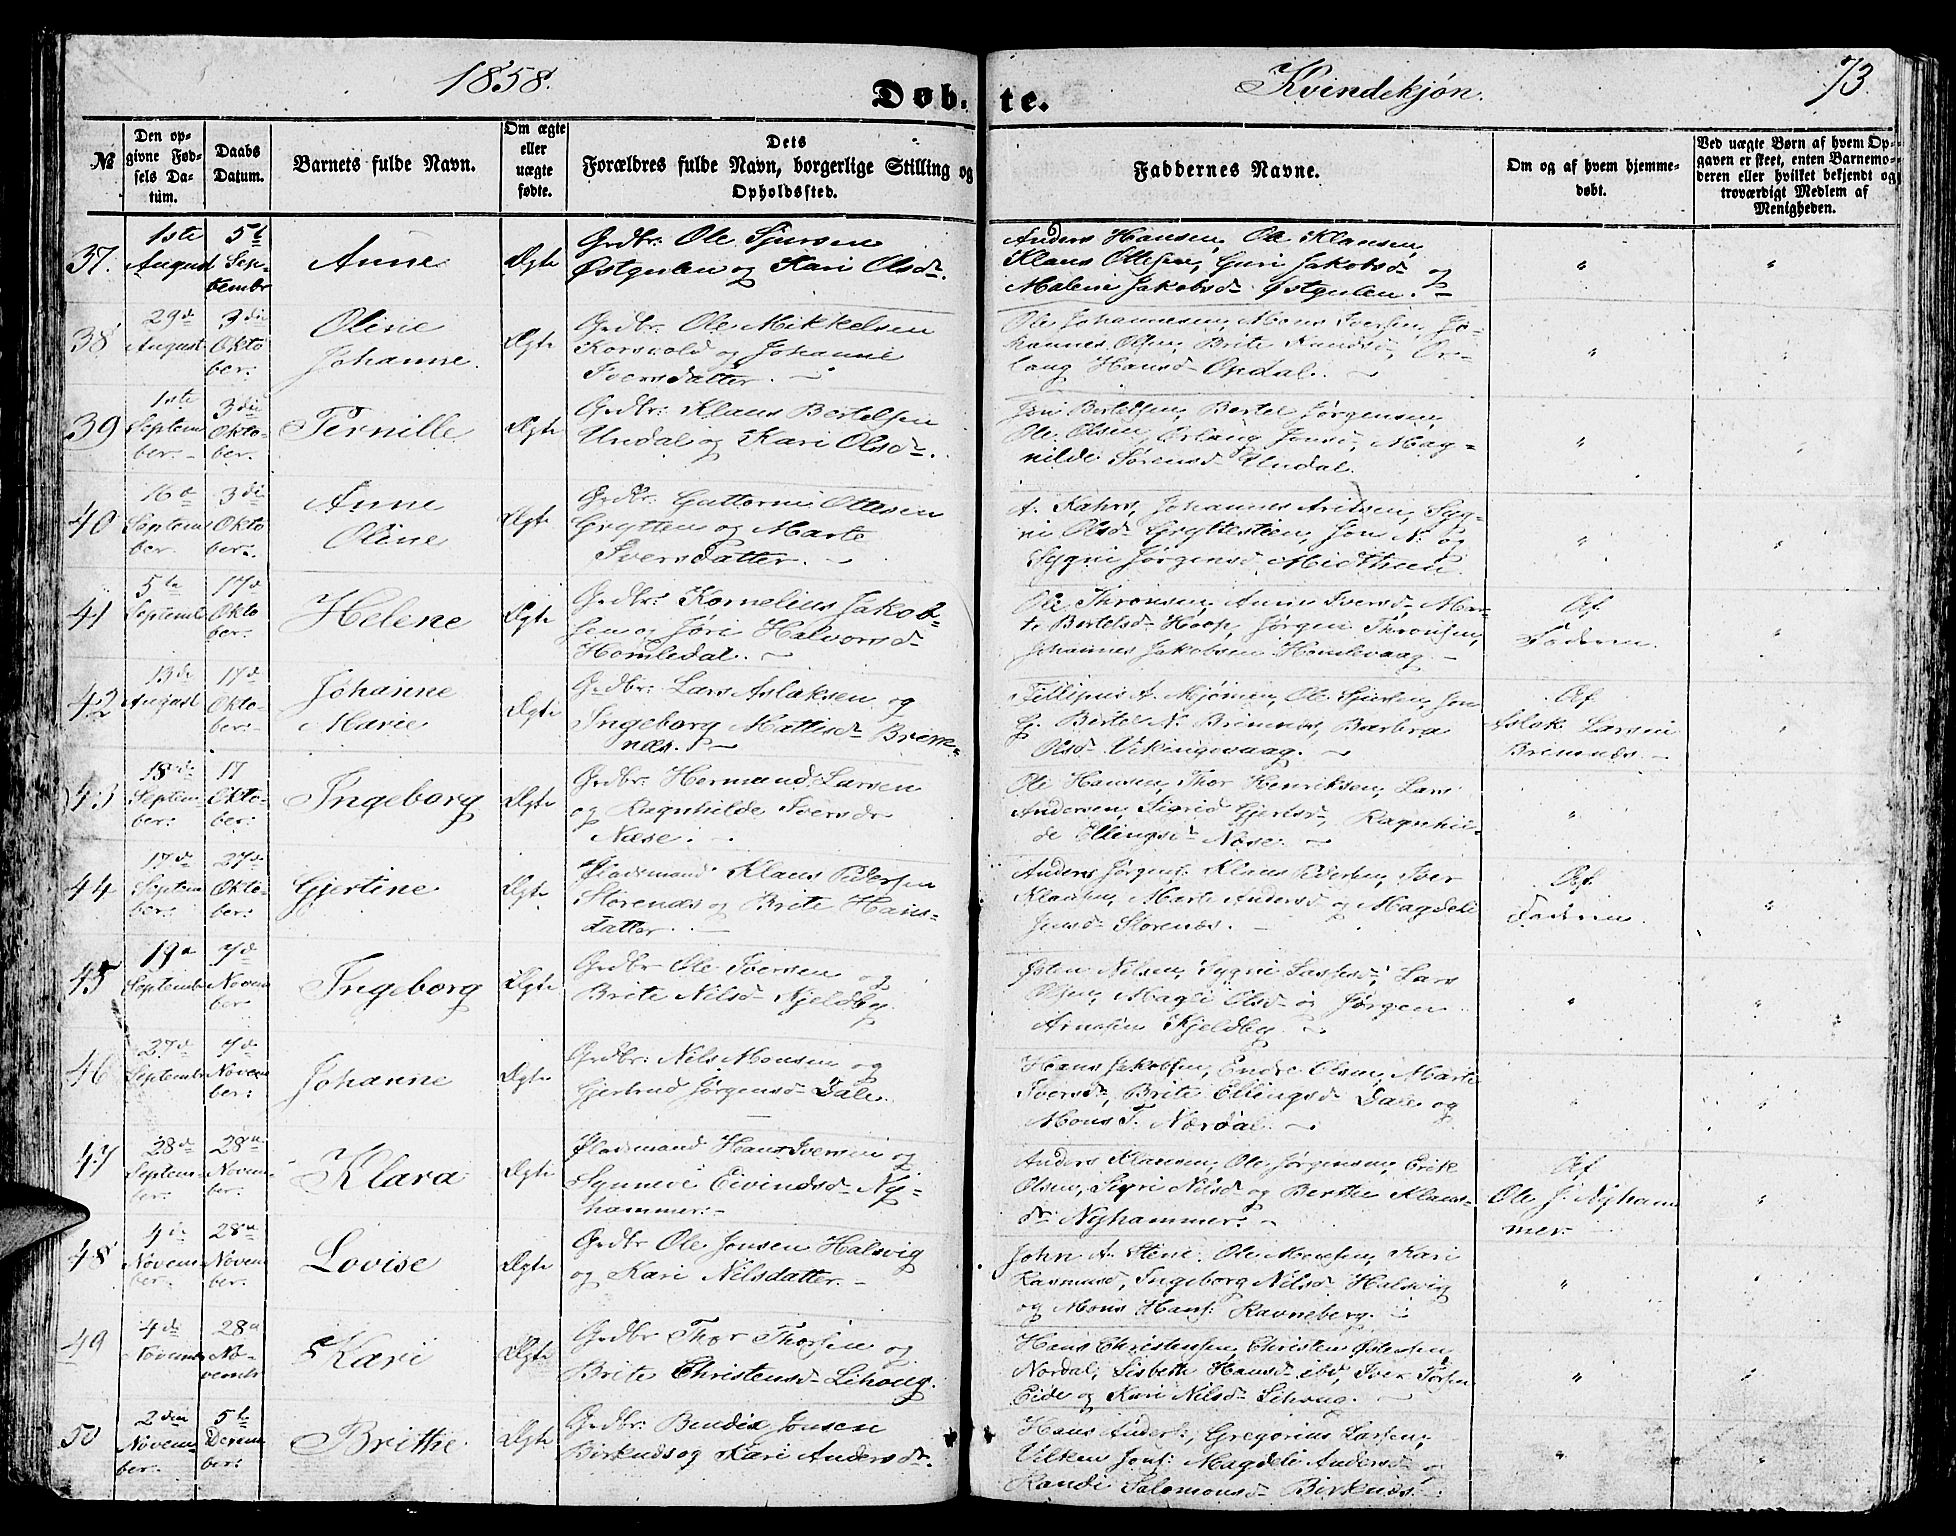 1858.
Døb-te.
Kvindekjøn.
73.
№
Den op-
givne Fød-
sels Da-
tum.
Daabs
Datum.
Barnets fulde Navn.
Om ægte
eller
uægte
fødte.
Dets
Forældres fulde Navn, borgerlige Stilling og
Opholdssted.
Faddernes Navne.
Om og af hvem hjemme-
døbt.
Ved uægte Børn af hvem Op-
gaven er skeet, enten Barnemo-
deren eller hvilket bekjendt og
troværdigt Medlem af
Menigheden.
37.
1ste
August
5te
Sep-
tembr
Anne
Ægte
Grdbr: Ole Sjursen
Østgulen og Kari Olsdr.
Anders Hansen, Ole Klausen,
Klaus Ottesen, Guri Jakobsd og
Malene Jakobsdr Østgulen.
"
"
38
29de
August
3die
Okto
ber:
Oline
Johanne.
Ægte
Grdbr: Ole Mikkelsen
Korsvold og Johanne
Iversdatter.
Ole Johannesen, Mons Iversen, Jo-
hannes Olsen, Brite Knudsd,
Hansd
"
"
39
1ste
Septem
ber.
3die
Okto-
ber.
Pernille
Ægte
Grdbr: Klaus Bertelsen
Undal og Kari Olsdr.
Bertelsen, Bertel Jørgensen,
Ole Olsen, Jonsd, Mag-
nilde Sørensd Undal.
"
"
40
16de
Septem
ber.
3die
Okto
ber.
Anne
Oline
Ægte
Grdbr: Guttorm Ottesen
Grytten og Marte
Iversdatter.
A. Kahrs, Johannes
Olsd og
Sygni Jørgensd
"
"
41
5te
Septembr
17de
Okto
ber.
Helene
Ægte
Grdbr: Kornelius Jakob-
sen og Jøri Halvorsd
Homledal.
Ole Thronsen, Anne Iversd, Mar-
te Bertelsdr Hoop, Jørgen Thronsen,
Johannes Jakobsen Homlevaag.
Af
Faderen.
"
42
13de
August
17de
Okto-
ber:
Johanne
Marie
Ægte
Grdbr: Lars Aslaksen og
Ingeborg Mattisdr Brem-
næs.
Fillipus A. Mjømen, Ole Sjursen, Jon
Bertel N. Brimnes, Barbra
Olsdr Vikingevaag.
Af
Aslak Larsen
Brimnæs.
"
43
18de
Septem
ber:
17
Okto-
ber:
Ingeborg
Ægte
Grdbr: Hermund Larsen
og Ragnhilde Iversdr
Næse.
Ole Hansen, Thor Henriksen, Lars
Andersen, Sigrid Gjertsdr, Ragnhil-
de Ellingsdr Næse.
"
"
44
17de
Septem
ber:
27de
Okto-
ber:
Gjertine
Ægte
Pladsmand Klaus Pedersen
Storenæs og Brite Hans-
datter.
Anders Jørgens: Klaus Pedersen, Iver
Klausen, Marte Andersd og Magdeli
Jensdr Storenæs.
Af
Faderen.
"
45
19de
Septembr
7de
Novem
ber
Ingeborg
Ægte
Grdbr Ole Iversen og
Brite Nilsdr Kjeldby.
Østen Nilsen, Sygni Lassesd, Lars
Olsen, Magli Olsdr og Jørgen
Arnesen Kjeldby.
"
"
46
27de
Septembr
7de
Novem
ber:
Johanne
Ægte
Grdbr: Nils Monsen og
Gjertrud Jørgensdr Dale.
Hans Jakobsen, Endre Olsen, Marte
Iversdr, Brite Ellingsdr Dale og
Mons T. Nærdal.
"
"
47
28de
Septem
ber.
28de
Novem
ber.
Klara
Ægte
Pladsmand Hans Iversen og
Synneve Eivindsdr Ny-
hammer.
Anders Klausen, Ole Jørgensen, Erik
Olsen, Siri Nilsd og Berthe Klaus-
dr Nyhammer.
Af
Ole J. Nyham
mer.
"
48
4de
Novem
ber.
28de
Novem
ber.
Lovise
Ægte
Grdbr Ole Jonsen Halsvig
og Kari Nilsdatter.
John A. Stene. Ole Monsen, Kari
Rasmusd, Ingeborg Nilsd Halsvig
og Mons Hans: Ravneberg.
"
"
49
4de
Novembr
28de
No-
vembr
Kari
Ægte
Grdbr Thor Thorsen og
Brite Christensdr Lihoug.
Hans Christensen, Christen Østensen
Nordal, Lisbeth Hansdr ibd, Iver Torsen
Eide og Kari Nilsdr Lihoug.
"
"
50
2den
Novem-
ber.
5te
Decem
ber:
Brithe
Ægte
Grdbr: Bendix Jonsen
Birknæs og Kari Andersdr.
Hans Anders:, Gregorius Larsen,
Vilken Jons: Magdeli Andersd og
Randi Salomonsd Birknæs.
"
"